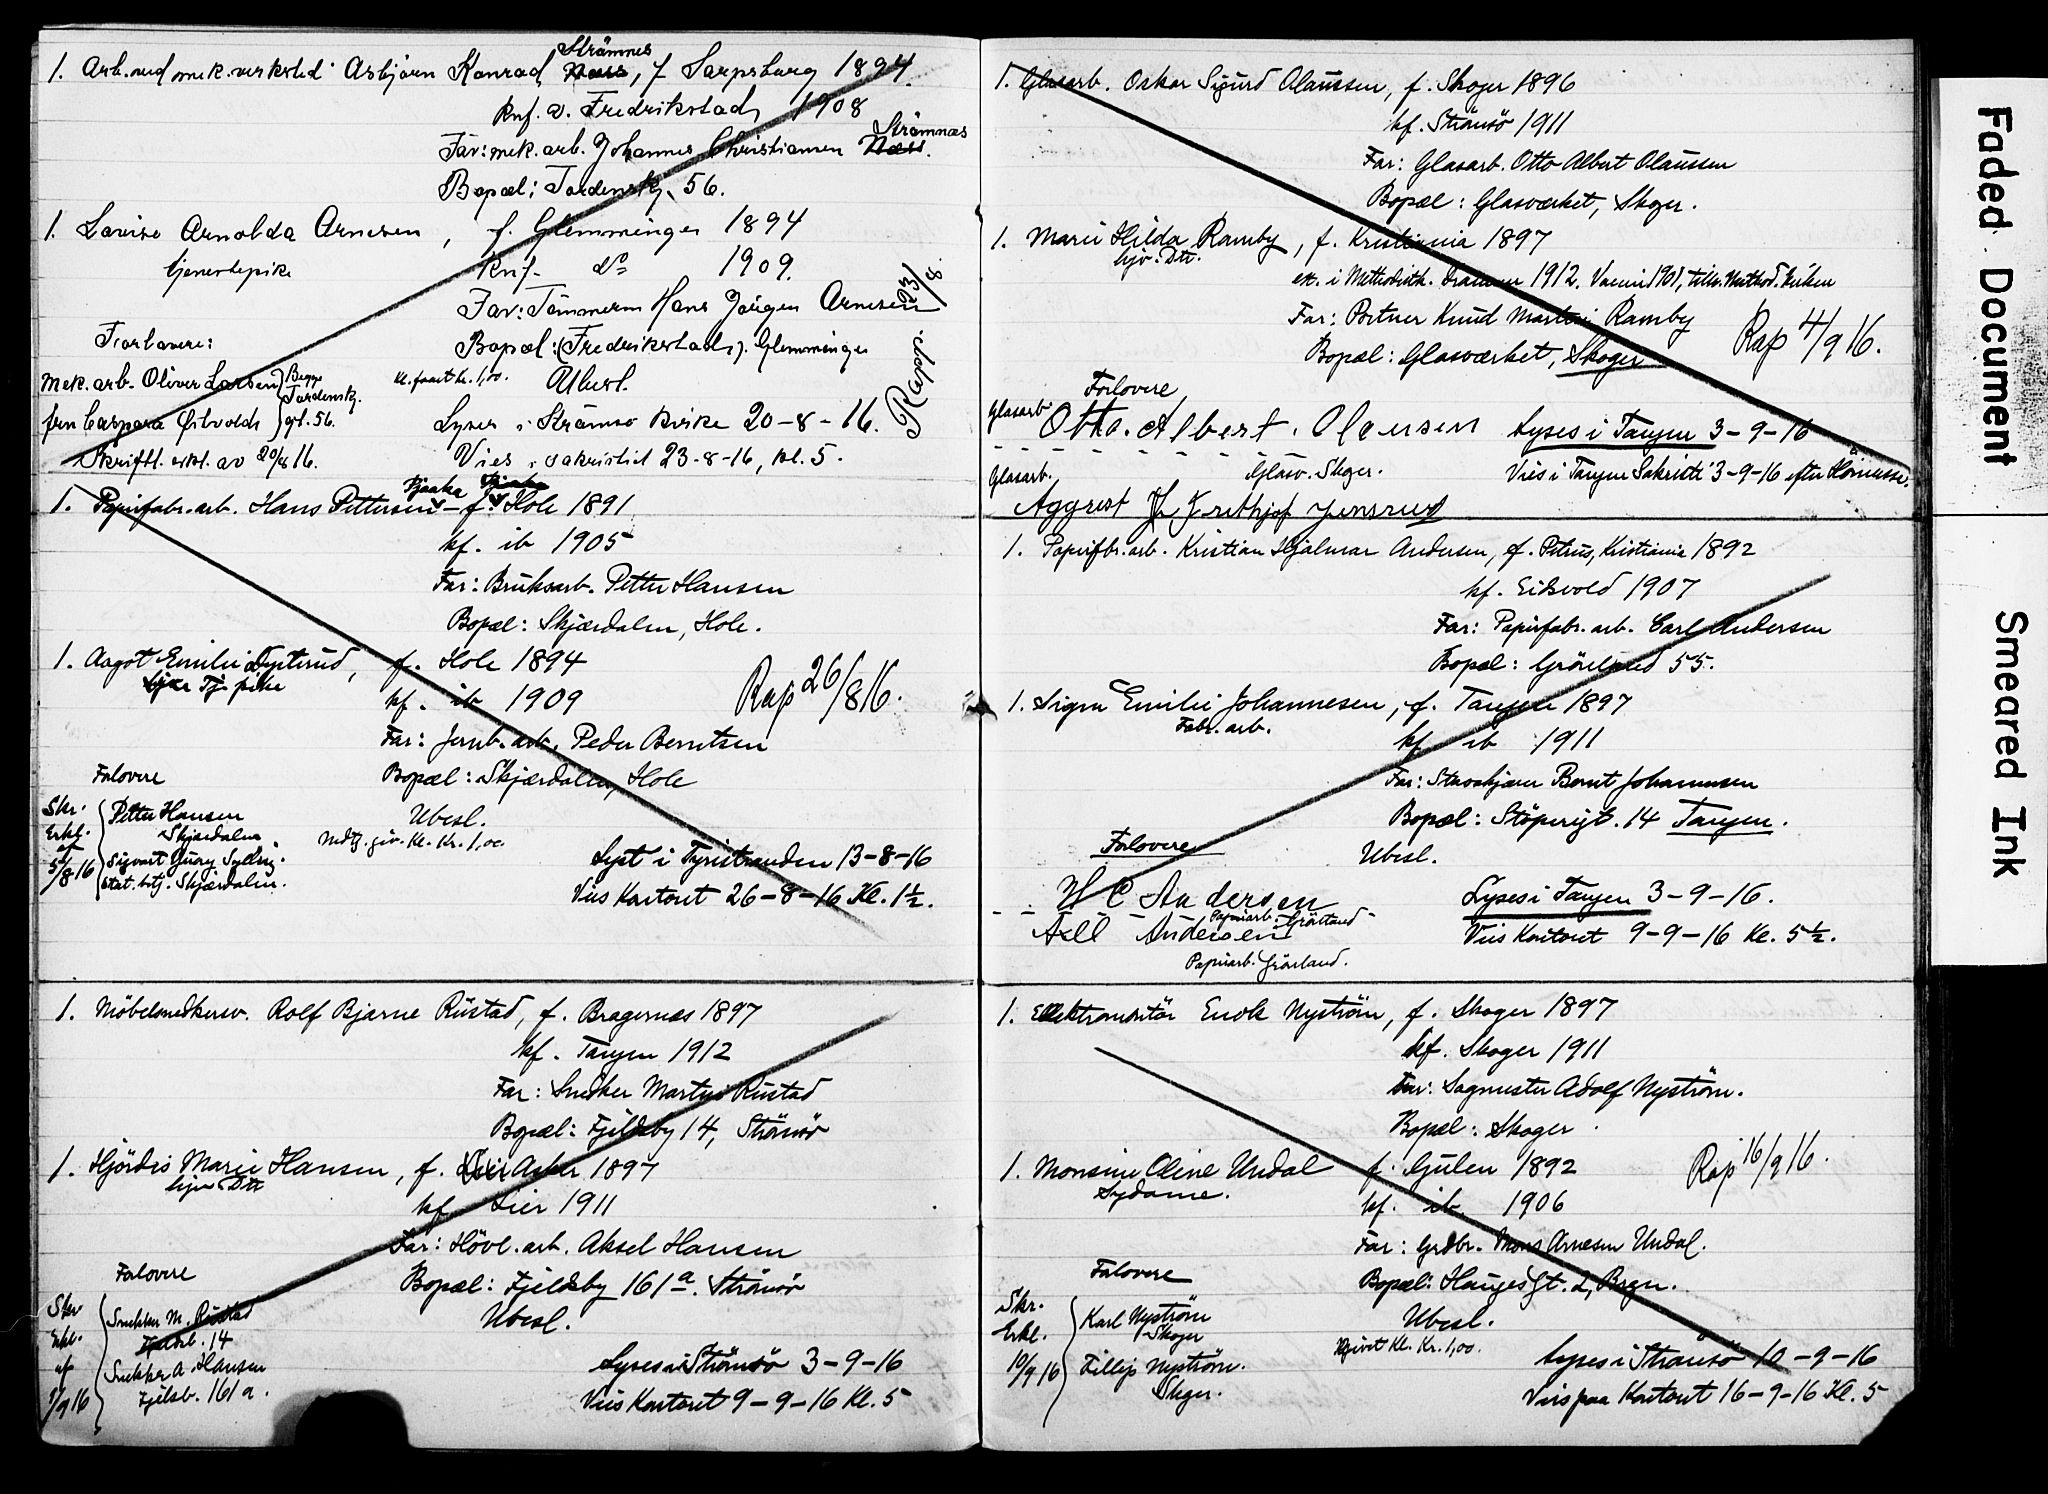 1. Arb. ved mek. verksted Asbjørn Konrad Strømnes Næss, f Sarpsborg 1894.
Knf. v. Fredrikstad 1908
Far: mek. arb. Johannes Christiansen Strømnæs Næss.
Bopæl: Tordensk. 56.
1. Lovise Arnolda Arnesen, f. Glemminge 1894
tjenestepike Knf. do 1909.
Far: Tømmerm Hans Jørgen Arnesen
Forlovere: Bopæl: (Fredrikstad). Glemminge
Mek. arb. Oliver Larsen Begge Tordenskj. gt. 56. Kl. faaet kr. 1,00. Ubesl.
fru Caspara Ørbvold Lyser i Strømsø Kirke 20-8-16.
Skriftl. erkl. av 20/8 16. Vies i sakristiet 23-8-16, kl. 5.
Rapp. 23/8
1. Papirfabr. arb. Hans Pettersen Bjaake f. Hole 1891
kf. ib 1905
Far: Bruksarb. Petter Hansen
Bopæl: Skjærdalen, Hole.
1. Aagot Emilie Tysterud, f. Hole 1894
Tj. pike kf. ib 1909 Rap 26/8 16.
Far: Jernb. arb. Peder Berntsen
Forlovere Bopæl: Skjærdalen, Hole
Skr. Erkl. af 5/8 16 Petter Hansen Ubesl.
Skjærdalen Medtj. giv. Kl. Kr. 1,00
Sigvart Lyst i Tyristranden 13-8-16
stat. betj. Skjærdalen. Viis Kontoret 26-8-16 Kl. 1½.
1. Möbelsnedkersv. Rolf Bjarne Rustad, f. Bragernæs 1897
kf. Tangen 1912
Far: Snedker Martin Rustad
Bopæl: Fjeldsby 14, Strömsö
1. Hjördis Marie Hansen, f. Lier Asker 1897
hjv. Dtr kf. Lier 1911
Far: Hövl. arb. Aksel Hansen
Forlovere Bopæl: Fjeldsby 161a. Strömsö
Skr Erkl. af 1/9 16 Snekker M. Rustad Ubesl.
Fjeldb. 14
Snekker A. Hansen Lyses i Strömsö 3-9-16
Fjelsb. 161a. Viis Kontoret 9-9-16 Kl. 5
1. Glasarb. Oskar Sigurd Olaussen, f. Skoger 1896
kf. Strömsö 1911
Far: Glasarb. Otto Albert Olaussen
Bopæl: Glasværket, Skoger.
1. Marie Hilda Ramby, f. Kristiania 1897
hjv. Dtr. ek. i Methodistk. Drammen 1912. Vaccin. 1901, tilh. Method. kirken
Far: Portner Knud Martin Ramby
Bopæl: Glasværket, Skoger Rap 4/9 16.
Forlovere
Glasarb Otto. Albert. Olaussen Lyses i Tangen 3-9-16
Glasv. Skoger. Viis i Tangen Sakristi 3-9-16 efter Höimesse.
Glasarb. Aggrest Frithjof Jensrud
1. Papirfbr. arb. Kristian Hjalmar Andersen, f. Petrus, Kristiania 1892
kf. Eidsvold 1907
Far: Papirfabr. arb. Carl Andersen
Bopæl: Grönland 55.
1. Signe Emilie Johannesen, f. Tangen 1897
Fabr. arb. kf. ib 1911
Far: Stuvskjærer Bernt Johannesen
Bopæl: Støperigt. 14 Tangen.
Forlovere Ubesl.
H C Andersen Lyses i Tangen 3-9-16.
Papirarb. Grönland
Axll Andersen Viis Kontoret 9-9-16 Kl. 5½.
Papirarb. Grönland.
1. Elektromontör Enok Nyström, f. Skoger 1897
kf. Skoger 1911
Far: Sagmester Adolf Nyström.
Bopæl: Skoger.
1. Monsine Oline Undal f. Gulen 1892 Rap 16/9 16.
Sydame. kf. ib. 1906
Far: Grdbr. Mons Arnesen Undal.
Forlovere Bopæl: Hauges gt. 2, Bragn.
Skr. Erkl. 10/9 16 Karl Nyström Skoger Ubesl.
Givet Kl. Kr. 1,00.
Fillip Nyström. Skoger. Lyses i Strømsø 10-9-16
Viis paa Kontoret 16-9-16 Kl. 5
Faded Document
Smeared Ink